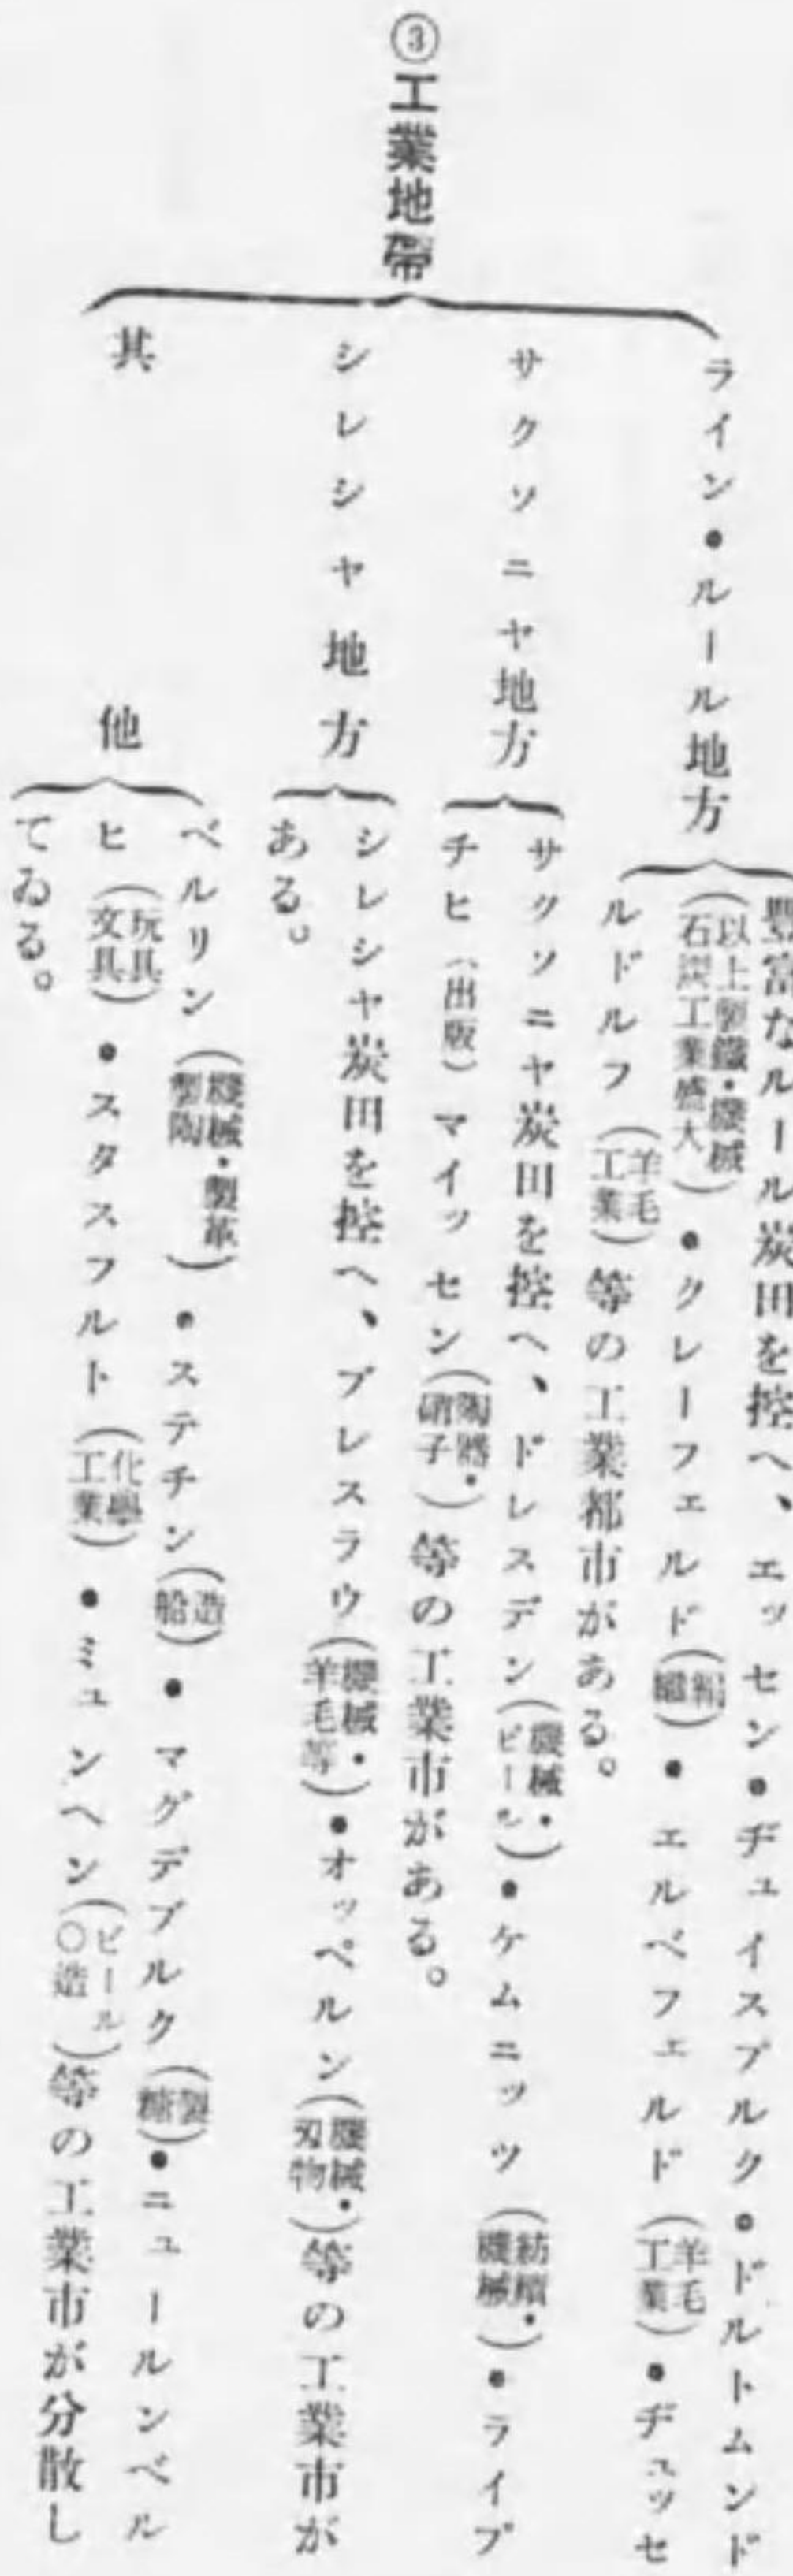 ③工業地帶
ライン・ルール地方
豐富なルール炭田を控へ、エッセン・ヂュイスブルク・ドルトムンド
(以上製鐵・機械石炭工業盛大)・クレーフェルド(絹織)・エルベフェルド(羊毛工業)・ヂュッセ
ルドルフ(羊毛工業)等の工業都市がある。
サクソニヤ地方
サクソニヤ炭田を控へ、ドレスデン(機械・ビール)・ケムニッツ(紡績・機械)・ライプ
チヒ(出版)マイッセン(陶器・硝子)等の工業市がある。
シレシヤ地方
シレシヤ炭田を控へ、ブレスラウ(機械・羊毛等)・オッペルン(機械・刃物)等の工業市が
ある。
其他
ベルリン(機械・製革製陶)・ステチン(造船)・マグデブルク(製糖)・ニュールンベル
ヒ(玩具文具)・スタスフルト(化學工業)・ミュンヘン(ビール〇造)等の工業市が分散し
てゐる。